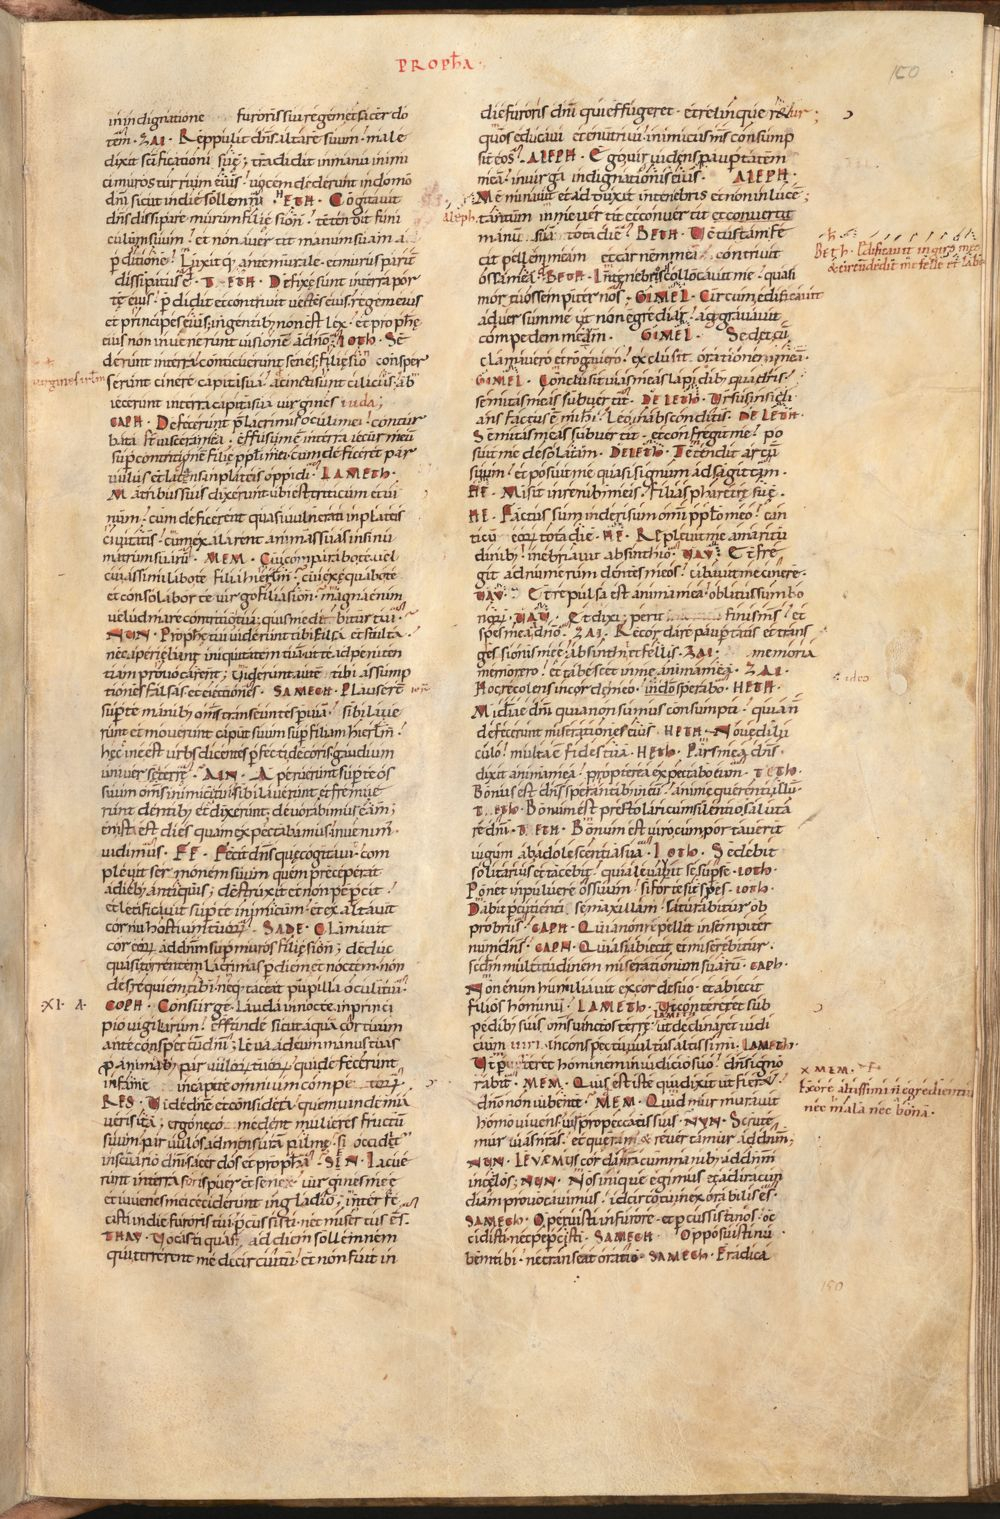 PROPħA·
150
in indignatione furoris sui regem et sacerdo
tem · ZAI · Reppulit dn̄s altare suum · male
dixit sc̄ificationi suę; tradidit in manu inimi
ci muros turrium eius · vocem dederunt in domo
dn̄i sicut in die sollemni · HETH · Cogitavit
dn̄s dissipare murum filię sion · tetendit funi
culum suum · et non avertit manum suam a
p̄ditione · Luxitq; antemurale · et murus parit̄
dissipatus ē · TETH · Defixę sunt in terra por
tę eius · p̄didit et contrivit vectes eius, regem eius
et principes eius; in gentib; non est lex · et prophę
eius non invenerunt visionē a dn̄o; IOTH · Se
derunt in terra conticuerunt senes, filię sion consper
virgines ierl̄m
serunt cinere capita sua · accincti sunt ciliciis, ab
iecerunt in terra capita sua virgines iuda;
CAPH · Defecerunt p̄ lacrimis oculi mei · contur
bata st̄ viscera mea · effusum ē in terra iecur meū
sup̄ contritione filię pp̄li mei · cum deficeret par
vulus et lactens in plateis oppidi · LAMETH ·
Matribus suis dixerunt ubi est triticum et vi
num · cum deficerent quasi vulnerati in plateis
civitatis · cum exalarent animas suas in sinu
matrum suarū · MEM · Cui comparabo te · vel
cui assimilabo te filia hierl̄m · cui exęquabo te
et consolabor te virgo filia sion · magna enim
velud mare contritio tua; quis medebitur tui ·
NUN · Prophę tui viderunt tibi falsa et stulta ·
nec aperiebant iniquitatem tuā · ut te ad peniten
tiam provocarent; Viderunt autē tibi assump
tiones falsas et eiectiones · SAMECH · Plauserū
sup̄ te manib; om̄s transeuntes p̄ viā · sibilave
runt et moverunt caput suum sup̄ filiam hierl̄m ·
hęcine est urbs dicentes p̄fecti decoris · gaudium
universę terrę · AIN · Aperuerunt sup̄ te os
suum om̄s inimici tui · sibilaverunt et fremue
runt dentib; et dixerunt, devorabimus eam;
en ista est dies quam expectabamus · invenim̄ ·
vidimus · FE · Fecit dn̄s quę cogitavit · com
plevit sermonem suum quem pręceperat
a dieb; antiquis; destruxit et non pep̄cit ·
et letificavit sup̄ te inimicum · et exaltavit
cornu hostium tuorꝝ · SADE · Clamavit
cor eorꝝ ad dn̄m sup̄ muros filię sion; deduc
quasi torrentem lacrimas p̄ diem et noctem · non
des requiem tibi · neq; taceat pupilla oculi tui ·
XI · A ·
COPH · Consurge · lauda in nocte, in princi
pio vigiliarum · effunde sicut aquā cor tuum
ante conspectū dn̄i; Leva ad eum manus tuas
p̄ animab; parvulorꝝ tuorꝝ · qui defecerunt
in fame in capite omnium compe torꝝ ·
RES · Vide dn̄e et considera quem vindemia
veris ita; ergo ne comedent mulieres fructū
suum parvulos ad mensurā palmę · si occidet̄
in sc̄uario dn̄i sacerdos et proph̄a · SEN · Iacue
runt in terra foris puer et senex · virgines meę
et iuvenes mei ceciderunt in gladio; interfe
cisti in die furoris tui · p̄cussisti · nec misertus es ·
THAV · Vocasti quasi ad diem sollemnem
qui terrerent me de circuitu; et non fuit in
die furoris dn̄i qui effugeret · et relinqueretur;
quos educavi et enutrivi · inimicus ms̄ consump
sit eos · ALEPH · Ego vir videns paupertatem
meā · in virga indignationis eius · ALEPH ·
Me minavit et adduxit in tenebris et non in lucē;
aleph
tantum in me vertit et convertit et convertit
manū suā tota die · BETH · Vetustam fe
cit pellem meam et carnem meā contrivit
Beth · Edificavit in gyro meo
& circūdedit me felle et labore
ossa mea · BETH · In tenebris collocavit me · quasi
mortuos sempiternos · GIMEL · Circumedificavit
adversum me ut non egrediar · aggravavit
compedem meam · GIMEL · Sed et cū
clamavero et rogavero · exclusit orationem meā ·
GIMEL · Conclusit vias meas lapidib; quadris ·
semitas meas subvertit · DELETH · Ursus insidi
ans factus ē mihi · Leo in absconditis · DELETH ·
Semitas meas subvertit · et confregit me · po
suit me desolatam · DELETH · Tetendit arcū
suum · et posuit me quasi signum ad sagittam ·
HE · Misit in renib; meis · filias pharetrę suę ·
HE · Factus sum in derisum omī pp̄lo meo · can
ticū eorꝝ tota die · HE · Replevit me amaritu
dinib; · inebriavit absinthio · VAV · Et fre
git ad numerum dentes meos · cibavit me cinere ·
VAV · Et repulsa est anima mea · oblitus sum bo
norꝝ · VAV · Et dixi; periit finis ms̄ · et
spes mea a dn̄o · ZAI · Recordare paupertatis et trans
gessionis meę absinthii et fellis · ZAI · memoria
memor ero · et tabescet in me anima mea · ZAI ·
ideo
Hoc recolens in corde meo · ideo sperabo · HETH ·
Miscd̄iae dn̄i quia non sumus consumpti · quia n̄
defecerunt miserationes eius · HETH · Novi dilu
culo · multa ē fides tua · HETH · Pars mea dn̄s ·
dixit anima mea · propterea expectabo eum · TETH ·
Bonus est dn̄s sperantib; in eū · animę querenti illū ·
TETH · Bonum est prestolari cum silentio salutā
re dn̄i · TETH · Bonum est viro cum portaverit
iugum ab adolescentia sua · IOTH · Sedebit
solitarius et tacebit · quia levabit se sup̄ se · IOTH ·
Ponet in pulvere os suum · si forte sit spes · IOTH ·
Dabit p̄cutienti se maxillam · saturabitur ob
probriis · CAPH · Quia non repellit in sempiter
num dn̄s · CAPH · Quia si abiecit et miserebitur ·
scd̄m multitudinem miserationum suarū · CAPH ·
Non enim humiliavit ex corde suo · et abiecit
filios hominū · LAMETH · Ut contereret sub
pedib; suis om̄s vinctos terrę · LAMETH ut declinaret iudi
cium viri in conspectu vultus altissimi · LAMETH ·
Ut p̄verteret hominem in iudicio suo · dn̄s igno
X MEM ·
Ex ore altissimi n̄ egredientur
nec mala nec bona ·
rabit · MEM · Quis est iste qui dixit ut fieret
dn̄o non iubente · MEM · Quid murmuravit
homo vivens · vir pro peccatis suis · NUN · Scrute
mur vias nr̄as · et queramus et revertamur ad dn̄m;
NUN · LEVEMUS corda nr̄a cum manib; ad dn̄m
in cęlos; NUN · Nos inique egimus et ad iracun
diam provocavimus · idcirco tu inexorabilis es ·
SAMECH · Operuisti in furore · et p̄cussisti nos · oc
cidisti nec pep̄cisti · SAMECH · Opposuisti nu
bem tibi · ne transeat oratio · SAMECH · Eradica
150